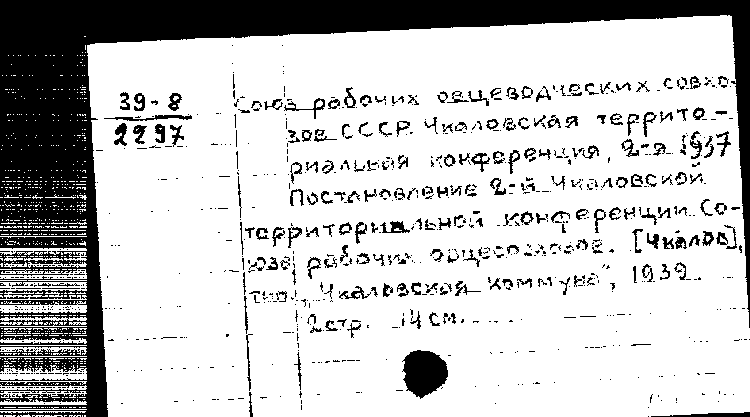 39-8
2297
Союз рабочих овцеводческих совхо-
зов СССР. Чкаловская террито-
риальная конференция, 2-я 1937
Постановление 2-й Чкаловской
территориальной конференции Со-
юза рабочих овцесовхозов. [Чкалов],
тип. „Чкаловская коммуна", 1939.
2 стр. 14 см.